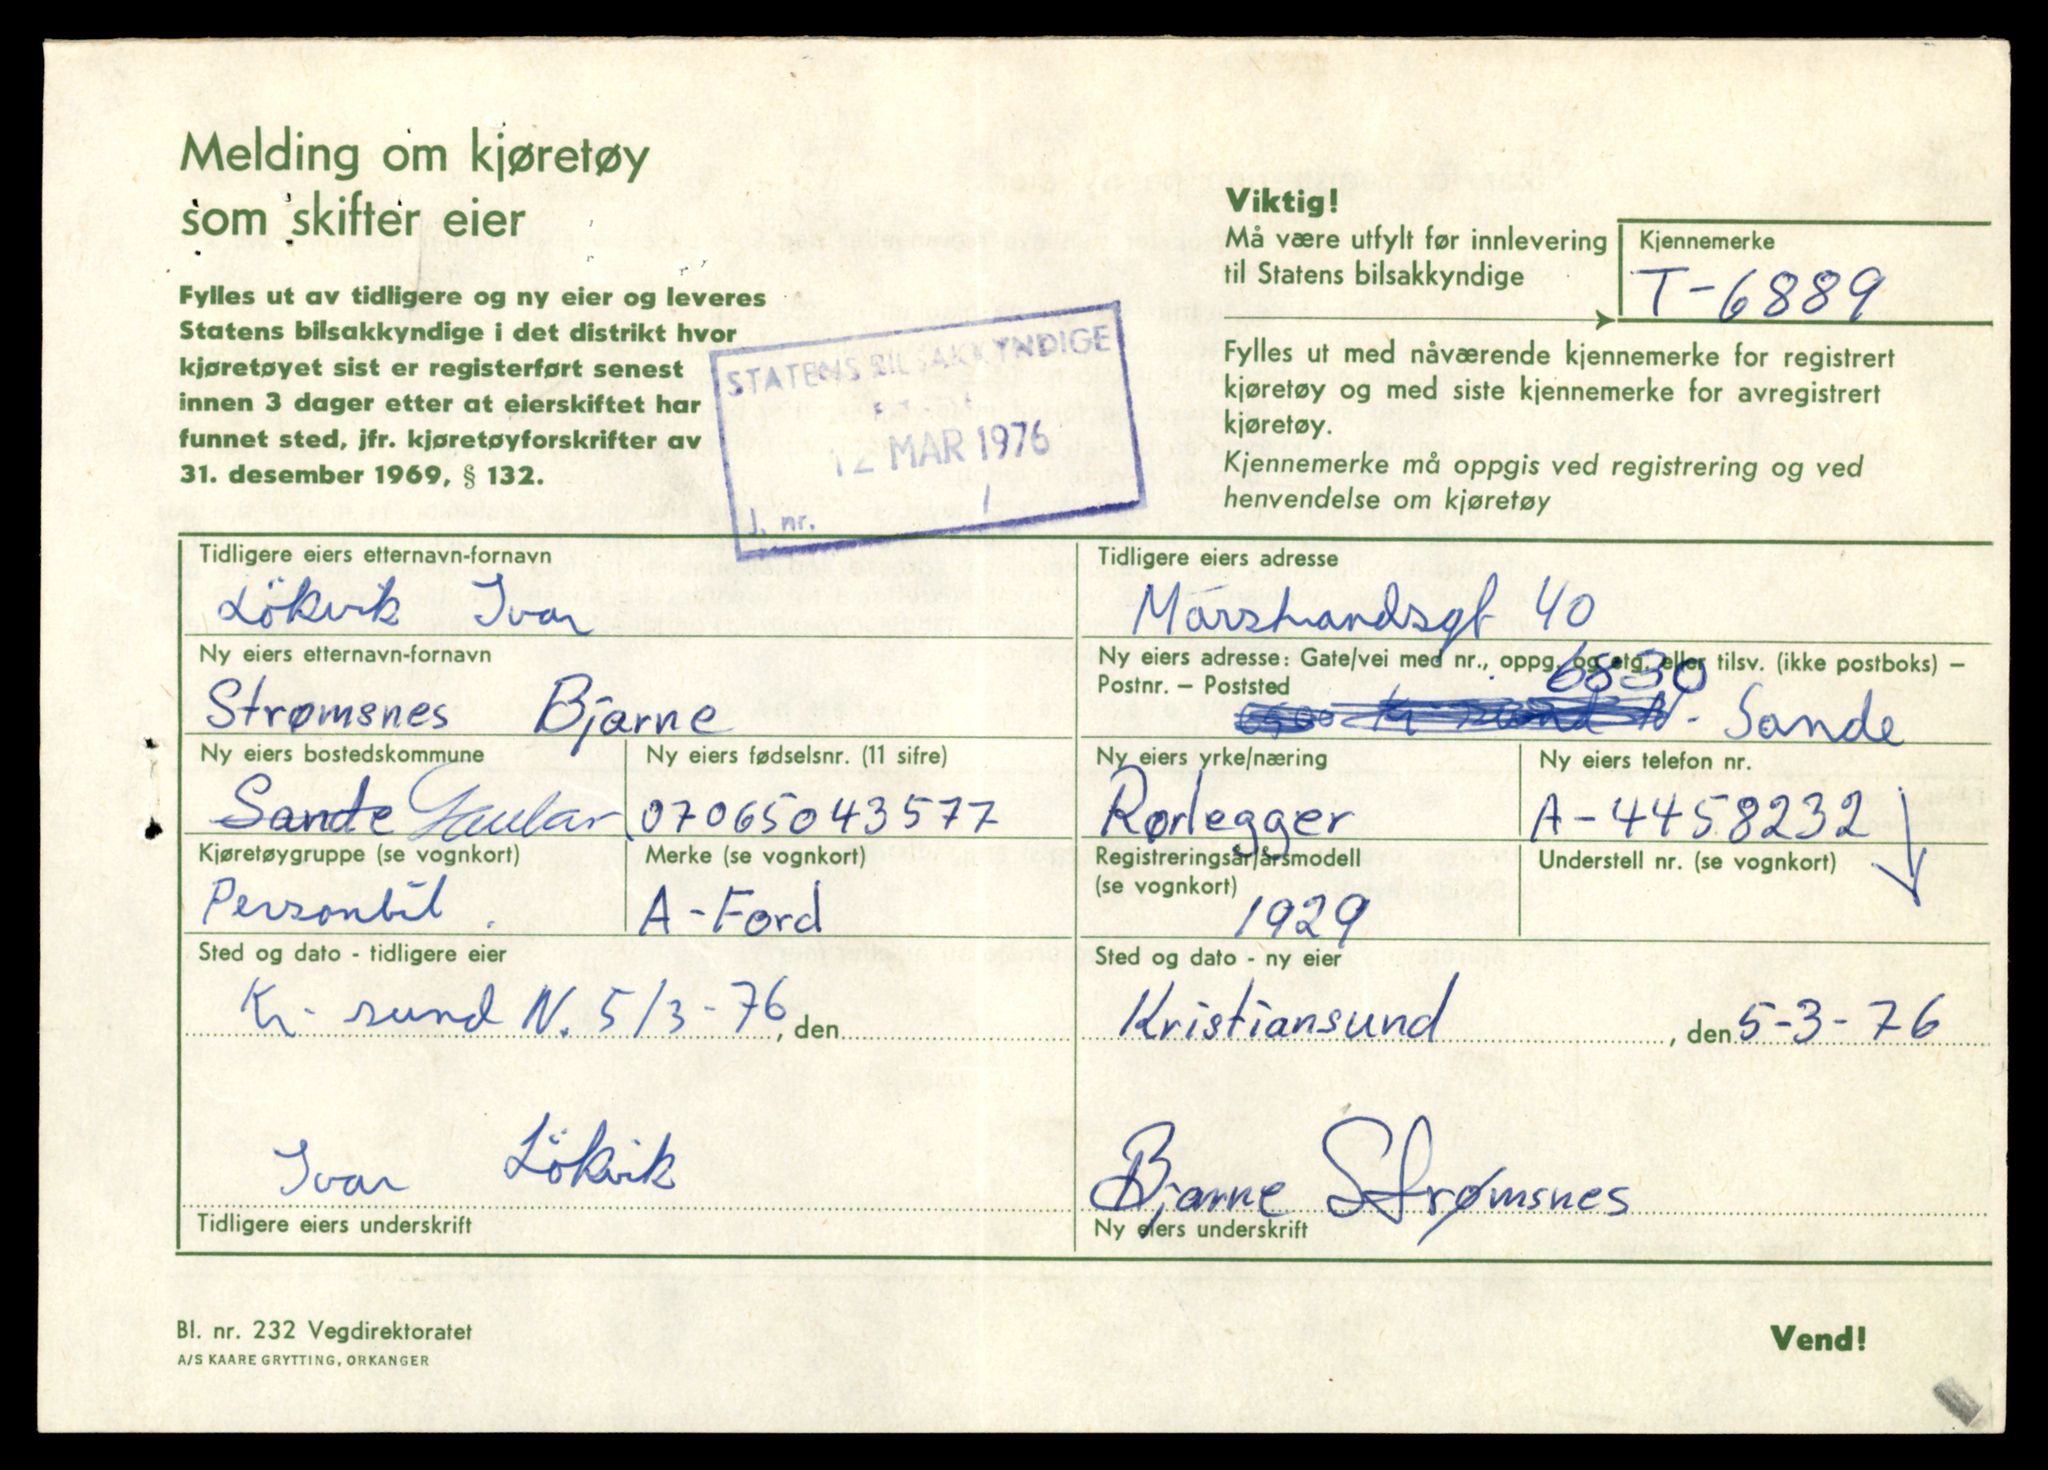 Melding om kjøretøy
som skifter eier
Fylles ut av tidligere og ny eier og leveres
Statens bilsakkyndige i det distrikt hvor
kjøretøyet sist er registerført senest
innen 3 dager etter at eierskiftet har
funnet sted, jfr. kjøretøyforskrifter av
31. desember 1969, § 132.
STATENS BILSAKKYNDIGE
12 MAR 1976
J. nr. /
Viktig!
Må være utfylt før innlevering
til Statens bilsakkyndige
Kjennemerke
T-6889
Fylles ut med nåværende kjennemerke for registrert
kjøretøy og med siste kjennemerke for avregistrert
kjøretøy.
Kjennemerke må oppgis ved registrering og ved
henvendelse om kjøretøy
Tidligere eiers etternavn-fornavn
Lökvik Ivar
Tidligere eiers adresse
40
Ny eiers etternavn-fornavn
Strømsnes Bjarne
Ny eiers adresse: Gate/vei med nr., oppg. og etg. eller tilsv. (ikke postboks) –
Postnr. – Poststed
6830
Sande
Ny eiers bostedskommune
Sande Gaular
Ny eiers fødselsnr. (11 sifre)
07065043577
Ny eiers yrke/næring
Rørlegger
Ny eiers telefon nr.
A-4458232
Kjøretøygruppe (se vognkort)
Personbil
Merke (se vognkort)
A-Ford
Registreringsår/årsmodell
(se vognkort)
1929
Understell nr. (se vognkort)
Sted og dato - tidligere eier
Kr- sund N. 5/3-76, den
Sted og dato - ny eier
Kristiansund, den 5-3-76
Ivar Lökvik
Tidligere eiers underskrift
Bjarne Strømsnes
Ny eiers underskrift
Bl. nr. 232 Vegdirektoratet
A/S KAARE GRYTTING, ORKANGER
Vend!